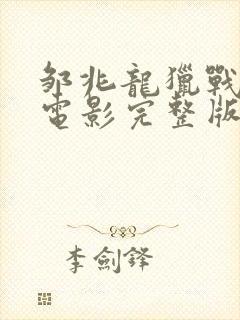 邹兆龍獵戰
電影完整版
李劍鋒